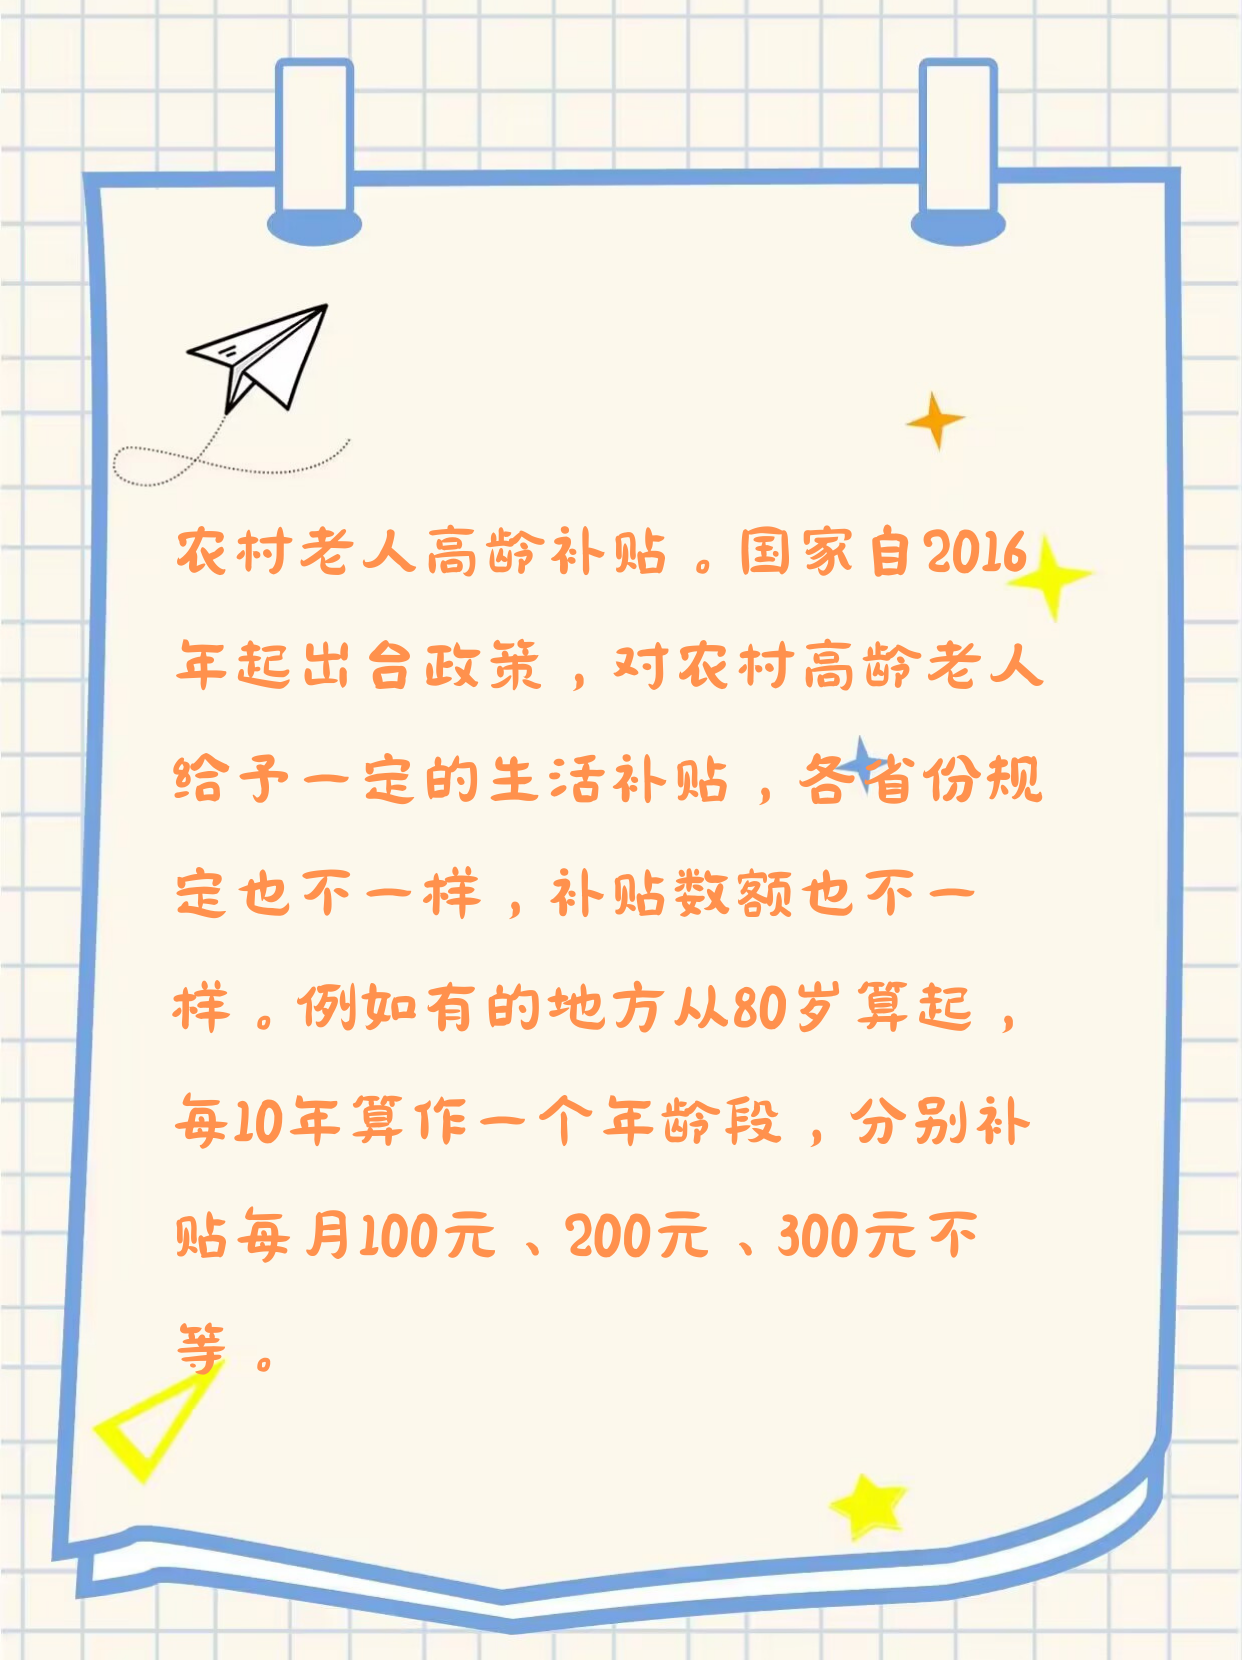 农村老人高龄补贴。国家自2016
年起出台政策，对农村高龄老人
给予一定的生活补贴，各省份规
定也不一样，补贴数额也不一
样。例如有的地方从80岁算起，
每10年算作一个年龄段，分别补
贴每月100元、200元、300元不
等。